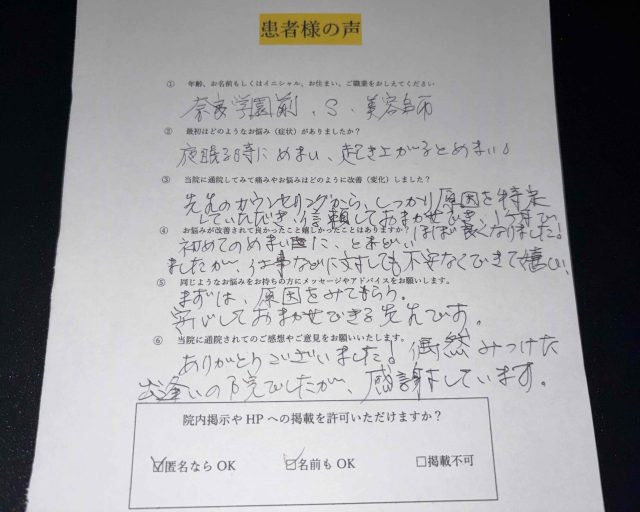 患者様の声
① 年齢、お名前もしくはイニシャル、お住まい、ご職業をおしえてください
奈良学園前、S、美容師
② 最初はどのようなお悩み（症状）がありましたか？
夜眠る時にめまい、起き上がるとめまい
③ 当院に通院してみて痛みやお悩みはどのように改善（変化）しました？
先生のカウンセリングから、しっかり原因を特定
していただき、信頼しておまかせでき、1ヶ月で
ほぼ良くなりました！
④ お悩みが改善されて良かったこと嬉しかったことはありますか？
初めてのめまいに、とまどい
ましたが、仕事などに対しても不安なくできて嬉しい、
⑤ 同じようなお悩みをお持ちの方にメッセージやアドバイスをお願いします。
まずは、原因をみてもらう。
安心しておまかせできる先生です。
⑥ 当院に通院されてのご感想やご意見をお願いいたします。
ありがとうございました！偶然みつけた
出逢いの院でしたが、感謝しています。
院内掲示や HP への掲載を許可いただけますか？
☑匿名なら OK ☑名前も OK □掲載不可